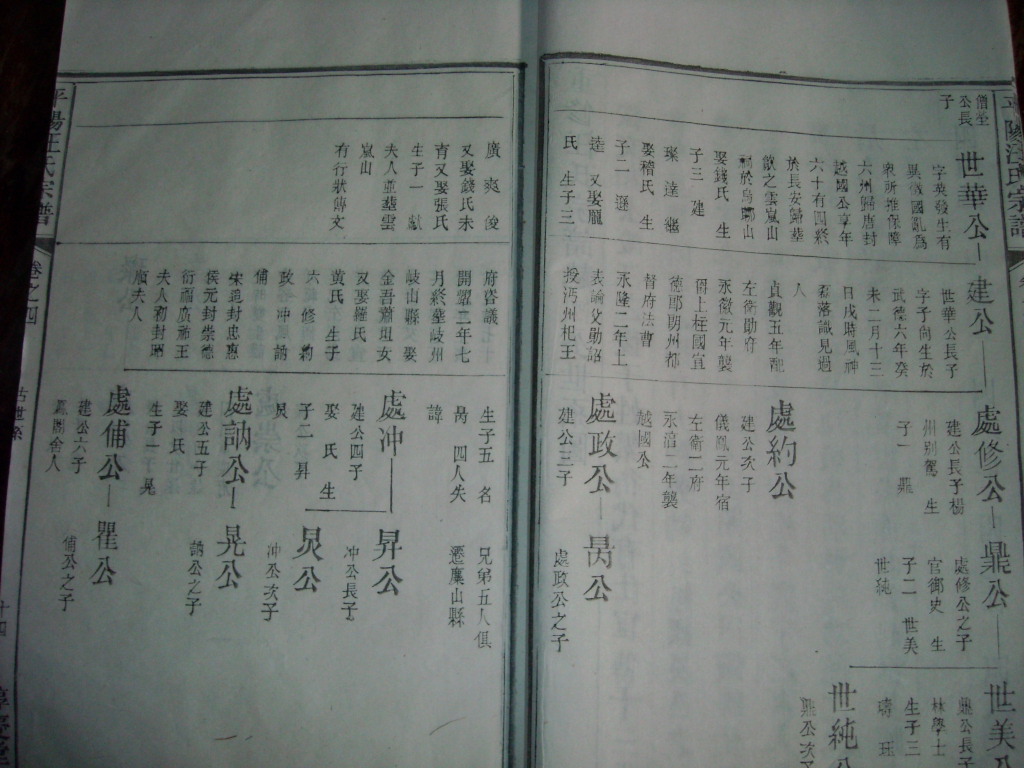 平陽汪氏宗譜
僧瑩
公長
子
世華公
字英發生有
異徵國亂為
眾所推保障
六州歸唐封
越國公享年
六十有四終
於長安歸葬
歙之雲嵐山
祠於烏聊山
娶錢氏 生
子三 建
璨 達 繼
娶稽氏 生
子二 遜
逵 又娶龐
氏 生子三
建公
世華公長子
字子尚生於
武德六年癸
未二月十三
日戌時風神
磊落識見過
人
貞觀五年配
左衛勛府
永徽元年襲
爵上柱國宣
德郎朗州都
督府法曹
永隆二年上
表論父勛詔
授沔州杞王
處修公
建公長子楊
州別駕 生
子一 鼎
鼎公
處修公之子
官御史 生
子二 世美
世純
世美公
鼎公長子
林學士
生子三
世純公
鼎公次子
處約公
建公次子
儀鳳元年宿
左衛一府
永淳二年襲
越國公
處政公
建公三子
昺公
處政公之子
廣 爽 俊
又娶錢氏未
育又娶張氏
生子一 獻
夫人並葬雲
嵐山
有行狀傳文
府咨議
開耀二年七
月終葬岐州
岐山縣 娶
金吾蕭垣女
又娶羅氏
黃氏 生子
六 修 約
政 沖 訥
俌
宋追封忠惠
侯元封崇德
衍福廣祐王
夫人初封昭
順夫人
生子五 名
昺 四人失
諱
兄弟五人俱
遷廩山縣
處沖公
建公四子
娶 氏 生
子二 昇
炅
昇公
沖公長子
炅公
沖公次子
處訥公
建公五子
娶 氏
生子一 晃
晃公
訥公之子
處俌公
建公六子
瞿公
俌公之子
平陽汪氏宗譜
卷之四
古世系
十四